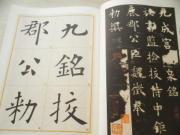 九成宮醴泉銘
祕書監檢挍侍中鉅
鹿郡公臣魏徵奉
勅撰
九銘挍
郡公勅